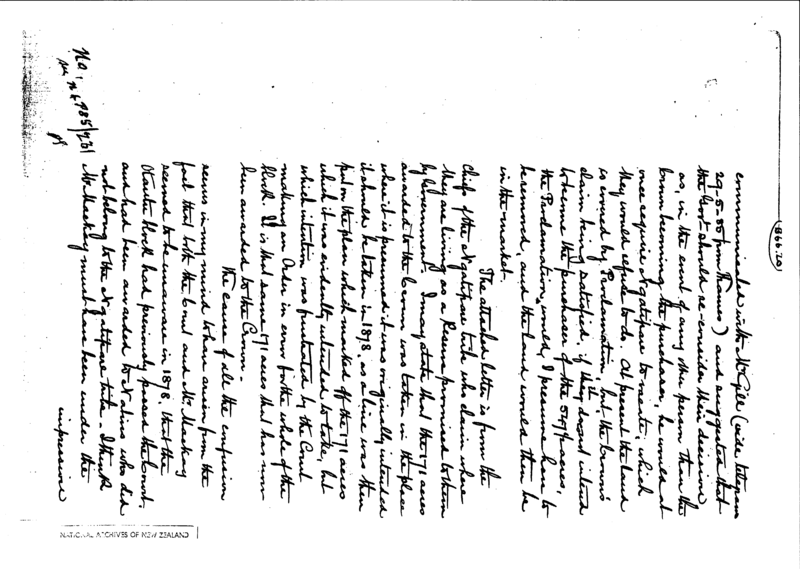 (866.20)
communicated with McGill (vide telegram
29-5-00 from Thames) and suggested that
the Govt should re-consider their decision
as, in the event of any other person than the
Crown becoming the purchaser, he would at
once require Ngatipare to vacate, which
they would refuse to do. At present the land
is covered by Proclamation, but the Crown's
claim being satisfied, if they do not intend
to become the purchaser of the acres,
the Proclamation, would, I presume have to
be removed, and the land would then be
in the market.
The attached letter is from the
Chiefs of the tribe who claim where
they are living as a Reserve promised to them
by Government. I may state that the 171 acres
awarded to the Crown was taken in the place
where it is presumed it was originally intended
it should be taken in 1878, as a line was then
put on the plan which marked off the 171 acres
which it was evidently intended to take, but
which intention was frustrated by the Court
making an Order in error for the whole of the
block. It is that same 171 acres that has now
been awarded to the Crown.
The cause of all the confusion
seems in my mind to have arisen from the
fact that both the Court and Mr Mackay
seemed to be unaware in 1878, that the
block had previously passed the Court,
and had been awarded to Natives who did
not belong to the tribe. I think
Mr Mackay must have been under the
impression
No.
NATIONAL ARCHIVES OF NEW ZEALAND